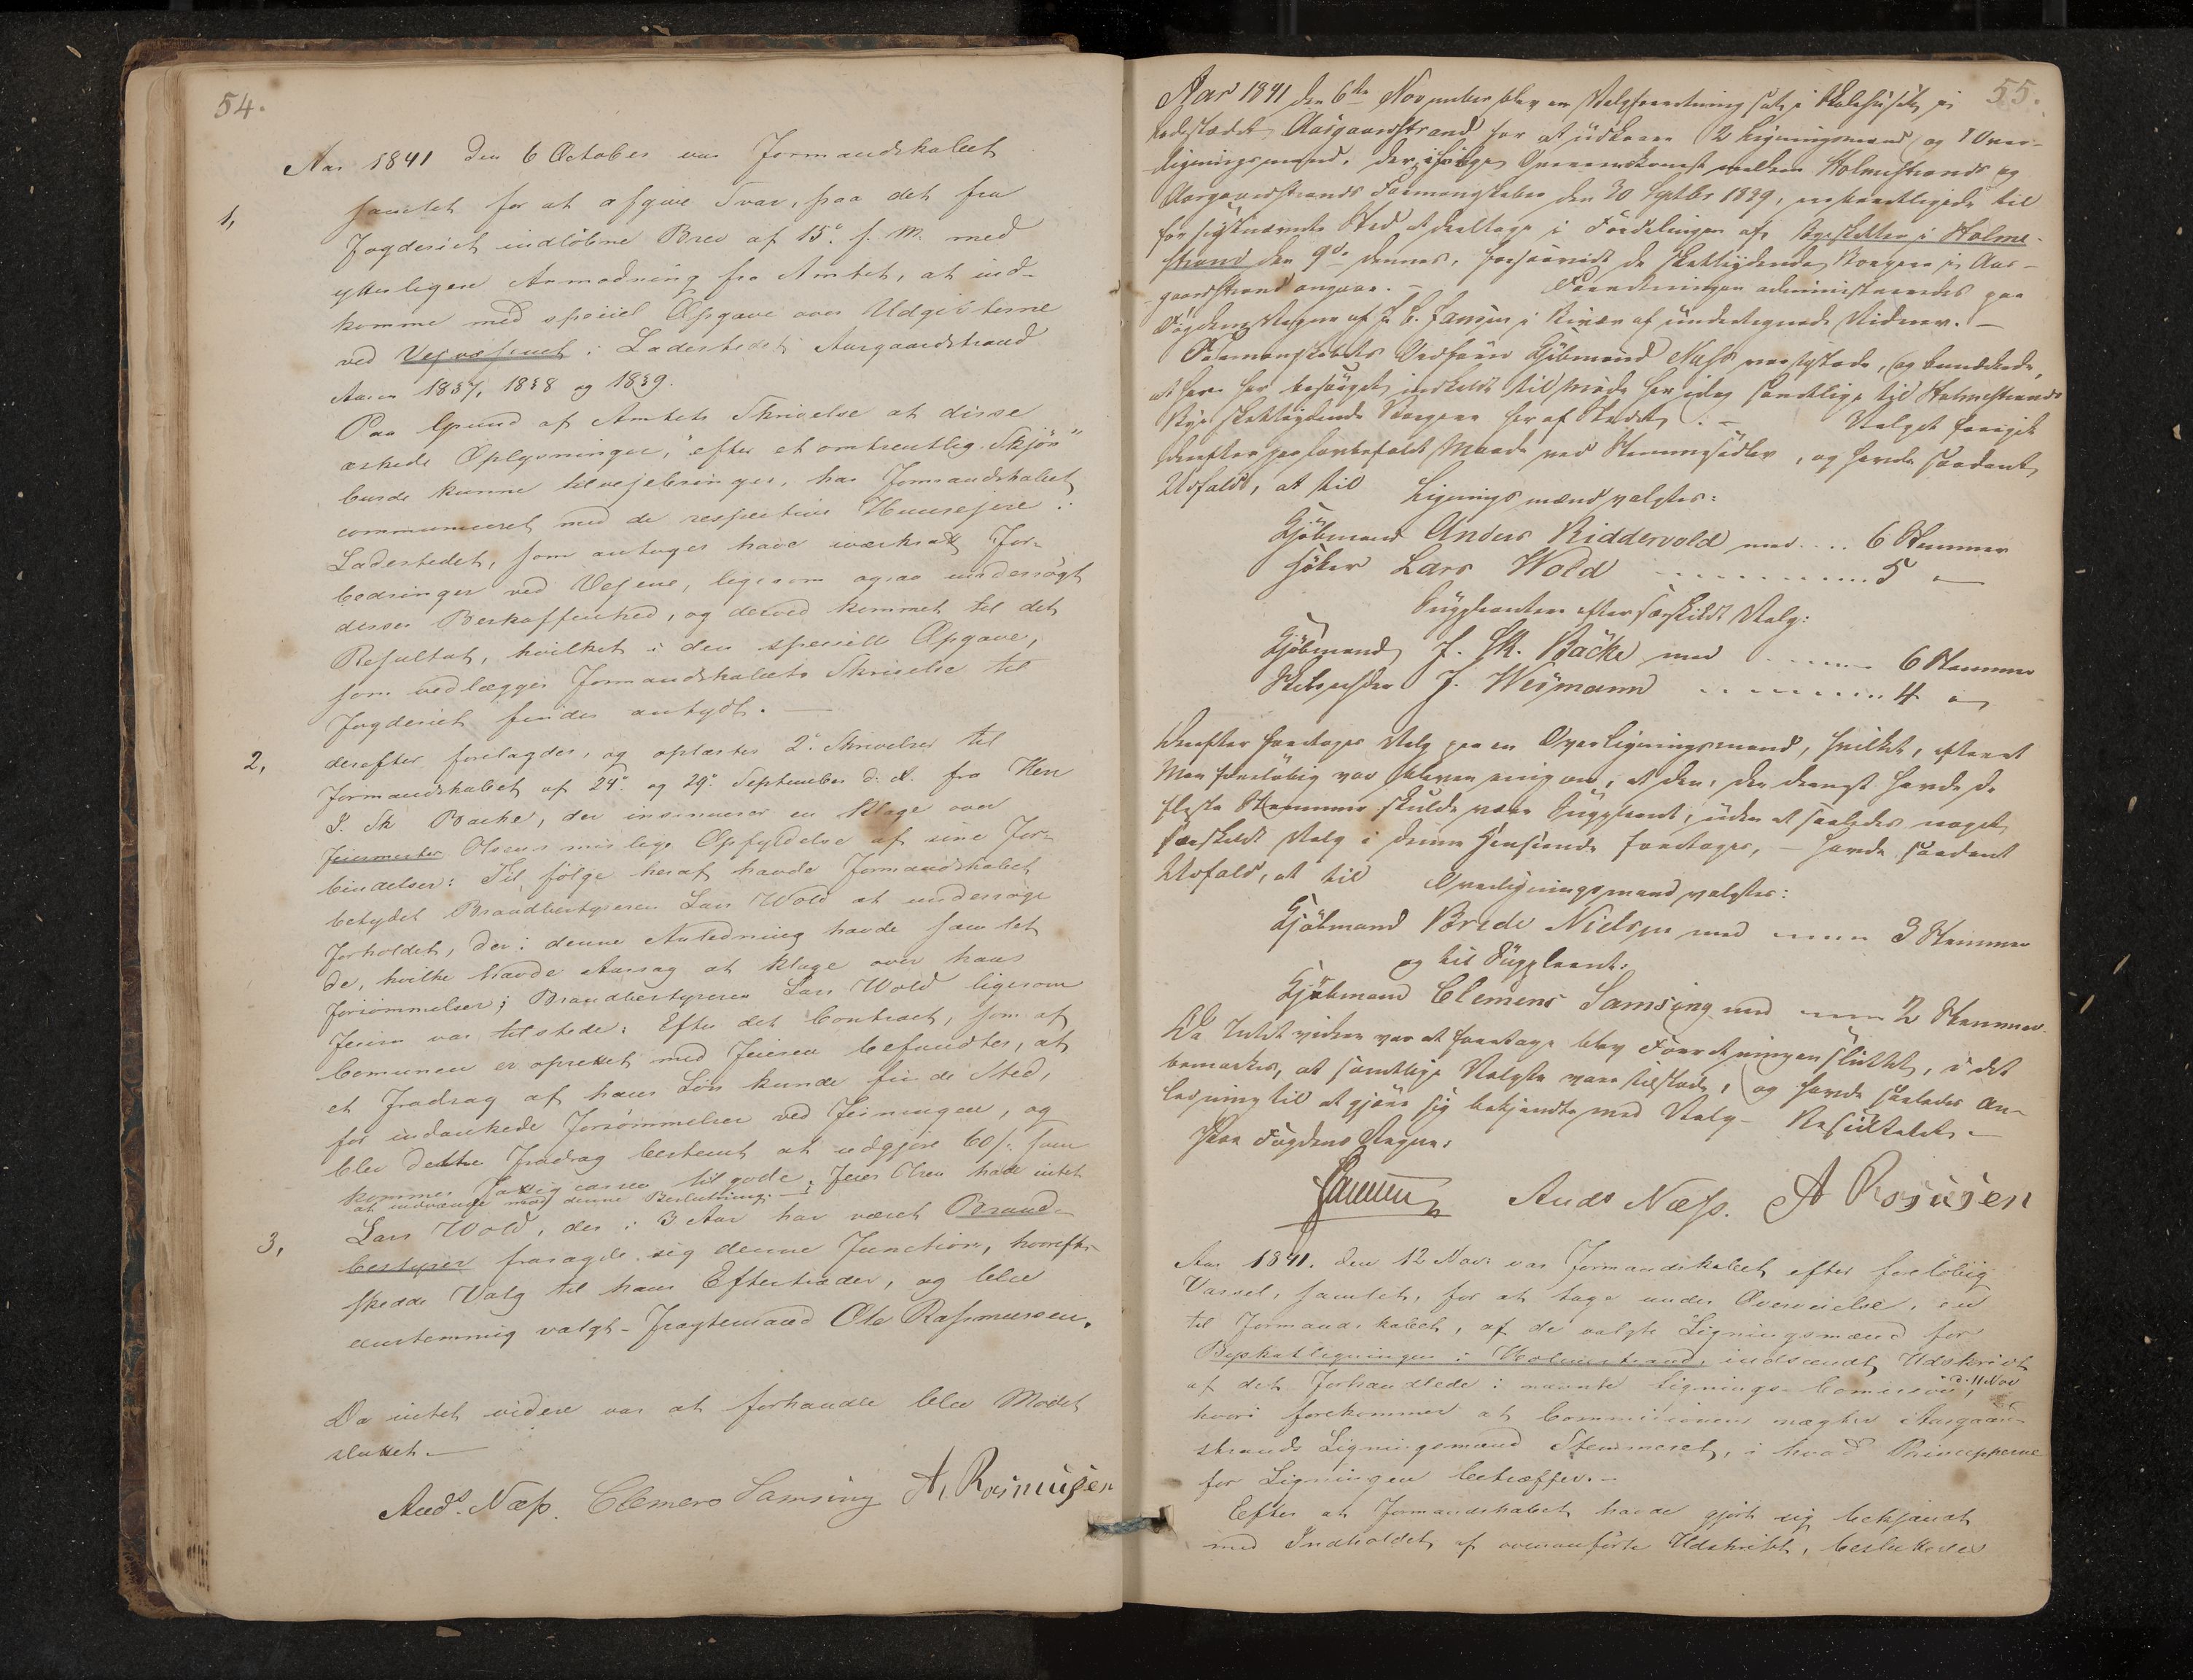 54.
Aar 1841 den 6 October var Formandskabet
1, samlet for at afgive Svar, paa det fra
Fogderiet indløbne Brev af 15de f. M. med
ytterligere Anmodning fra Amtet, at ind-
komme med speciel Opgave over Udgifterne
ved Vejvæsenet i Ladestedet Aasgaardstrand
Aaren 1837, 1838 og 1839.
Paa Grund af Amtets Skrivelse at disse
æskede Oplysninger, "efter et omtrentlig Skjøn"
burde kunne tilvejebringes, har Formandskabet
communiceret med de respective Huusejere i
Ladestedet, som antages have værksatt For-
bedringer ved Vejene, ligesom ogsaa undersøgt
disses Beskaffenhed, og derved kommet til det
Resultat, hvilket i den specielle Opgave,
som vedlægges Formandskabets Skrivelse til
Fogderiet findes antydt. —
2, derefter forelagdes, og oplæstes 2de Skrivelser til
Formandskabet af 24de og 29de September d. A. fra Herr
J. Sk Backe, der insinuerer en Klage over
Feiermester Olsens mislige Opfyldelse af sine For-
bindelser: Til følge heraf havde Formandskabet
betydet Brandbestyreren Lars Wold at undersøge
Forholdet, der i denne Anledning havde samlet
de, hvilke havde Aarsag at klage over hans
Forsømmelser; Brandbestyreren Lars Wold ligesom
Feieren var tilstede: Efter det Contract, som af
Comunen er oprettet med Feieren befandtes, at
et Fradrag af hans Løn kunde finde Sted,
for indankede Forsømmelser ved Feiningen, og
blev dette Fradrag bestemt at udgjøre 60 s. som
kommer Fattigcassen til gode. Feier Olsen havde intet
at indvende mod denne Beslutning. —
3, Lars Wold, der i 3 Aar har været Brand-
bestyrer frasagde sig denne Function, hvorefter
skedde Valg til hans Eftertræder, og blev
eenstemmig valgt - Fragtemand Ole Rasmussen.
Da intet videre var at forhandle blev Mødet
sluttet. —
Ands. Næss. Clemens Samsing A. Rasmusen
55.
Aar 1841 den 6te November blev en Valgforretning sat i Skolehuset paa
Ladestædet Aasgaardstrand for at udkaare 2 Ligningsmænd og 1 Over-
ligningsmand, der ifølge Overeenskomst mellem Holmestrands og
Aasgaardstrands Formandskaber den 30 Septbr 1839, ere berettigede til
for sidstnævnte Sted at deeltage i Fordelingen af Byeskatten i Holme-
strand den 9de dennes, forsaavidt de skattydende Borgere i Aas-
gaardstrand angaae. — Forretningen administreredes paa
Fogdens Vegne af J. C. Jansen i Nærvær af undertegnede Vidner. —
Formandskabets Ordfører Kjøbmand Næss var tilstede, og bemærkede,
at han har besørget indkaldt til Møde her idag samtlige til Holmestrands
Bye skattydende Borgere her af Stedet. — Valget foregik
derefter paa lovbefalet Maade ved Stemmesedler, og havde saadant
Udfald, at til Ligningsmænd valgtes:
Kjøbmand Anders Riddervold med .... 6 Stemmer
Høker Lars Wold ............ 5 —
Suppleanter efter særskildt Valg:
Kjøbmand J. Sk. Backe med ....... 6 Stemmer
J. Weismann ......... 4 —
Derefter foretoges Valg paa en Overligningsmand, hvilket, efterat
Man foreløbig var bleven enig om, at den, der dernæst havde de
fleste Stemmer skulde være Suppleant, uden at saaledes noget
særskildt Valg i denne Henseende foretages, — havde saadant
Udfald, at til Overligningsmand valgtes:
Kjøbmand Brede Nielsen med ....... 3 Stemmer
og til Suppleant:
Kjøbmand Clemens Samsing med ..... 2 Stemmer.
Da Intet videre var at foretage blev Forretningen sluttet, i det
bemærkes, at samtlige Valgte vare tilstede, og havde saaledes An-
ledning til at gjøre sig bekjendte med Valg-Resultatet. —
Paa Fogdens Vegne:
Jansen Ands Næss. A Rasmusen
Aar 1841. den 12 Nov: var Formandskabet efter foreløbig
Varsel, samlet, for at tage under Overveielse, en
til Formandskabet, af de valgte Ligningsmænd for
Byskatligningen i Holmestrand, indsændt Udskrivt
af det Forhandlede i nævnte Lignings-Comission, d. 11 Nov
hvori forekommer at Commissionens nægter Aasgaard-
strands Ligningsmænd Stemmeret, i hvad Principperne
for Ligningen betræffer. —
Efter at Formandskabet havde gjort sig bekjendt
med Indholdet af ovenanførte Udskrivt, besluttedes